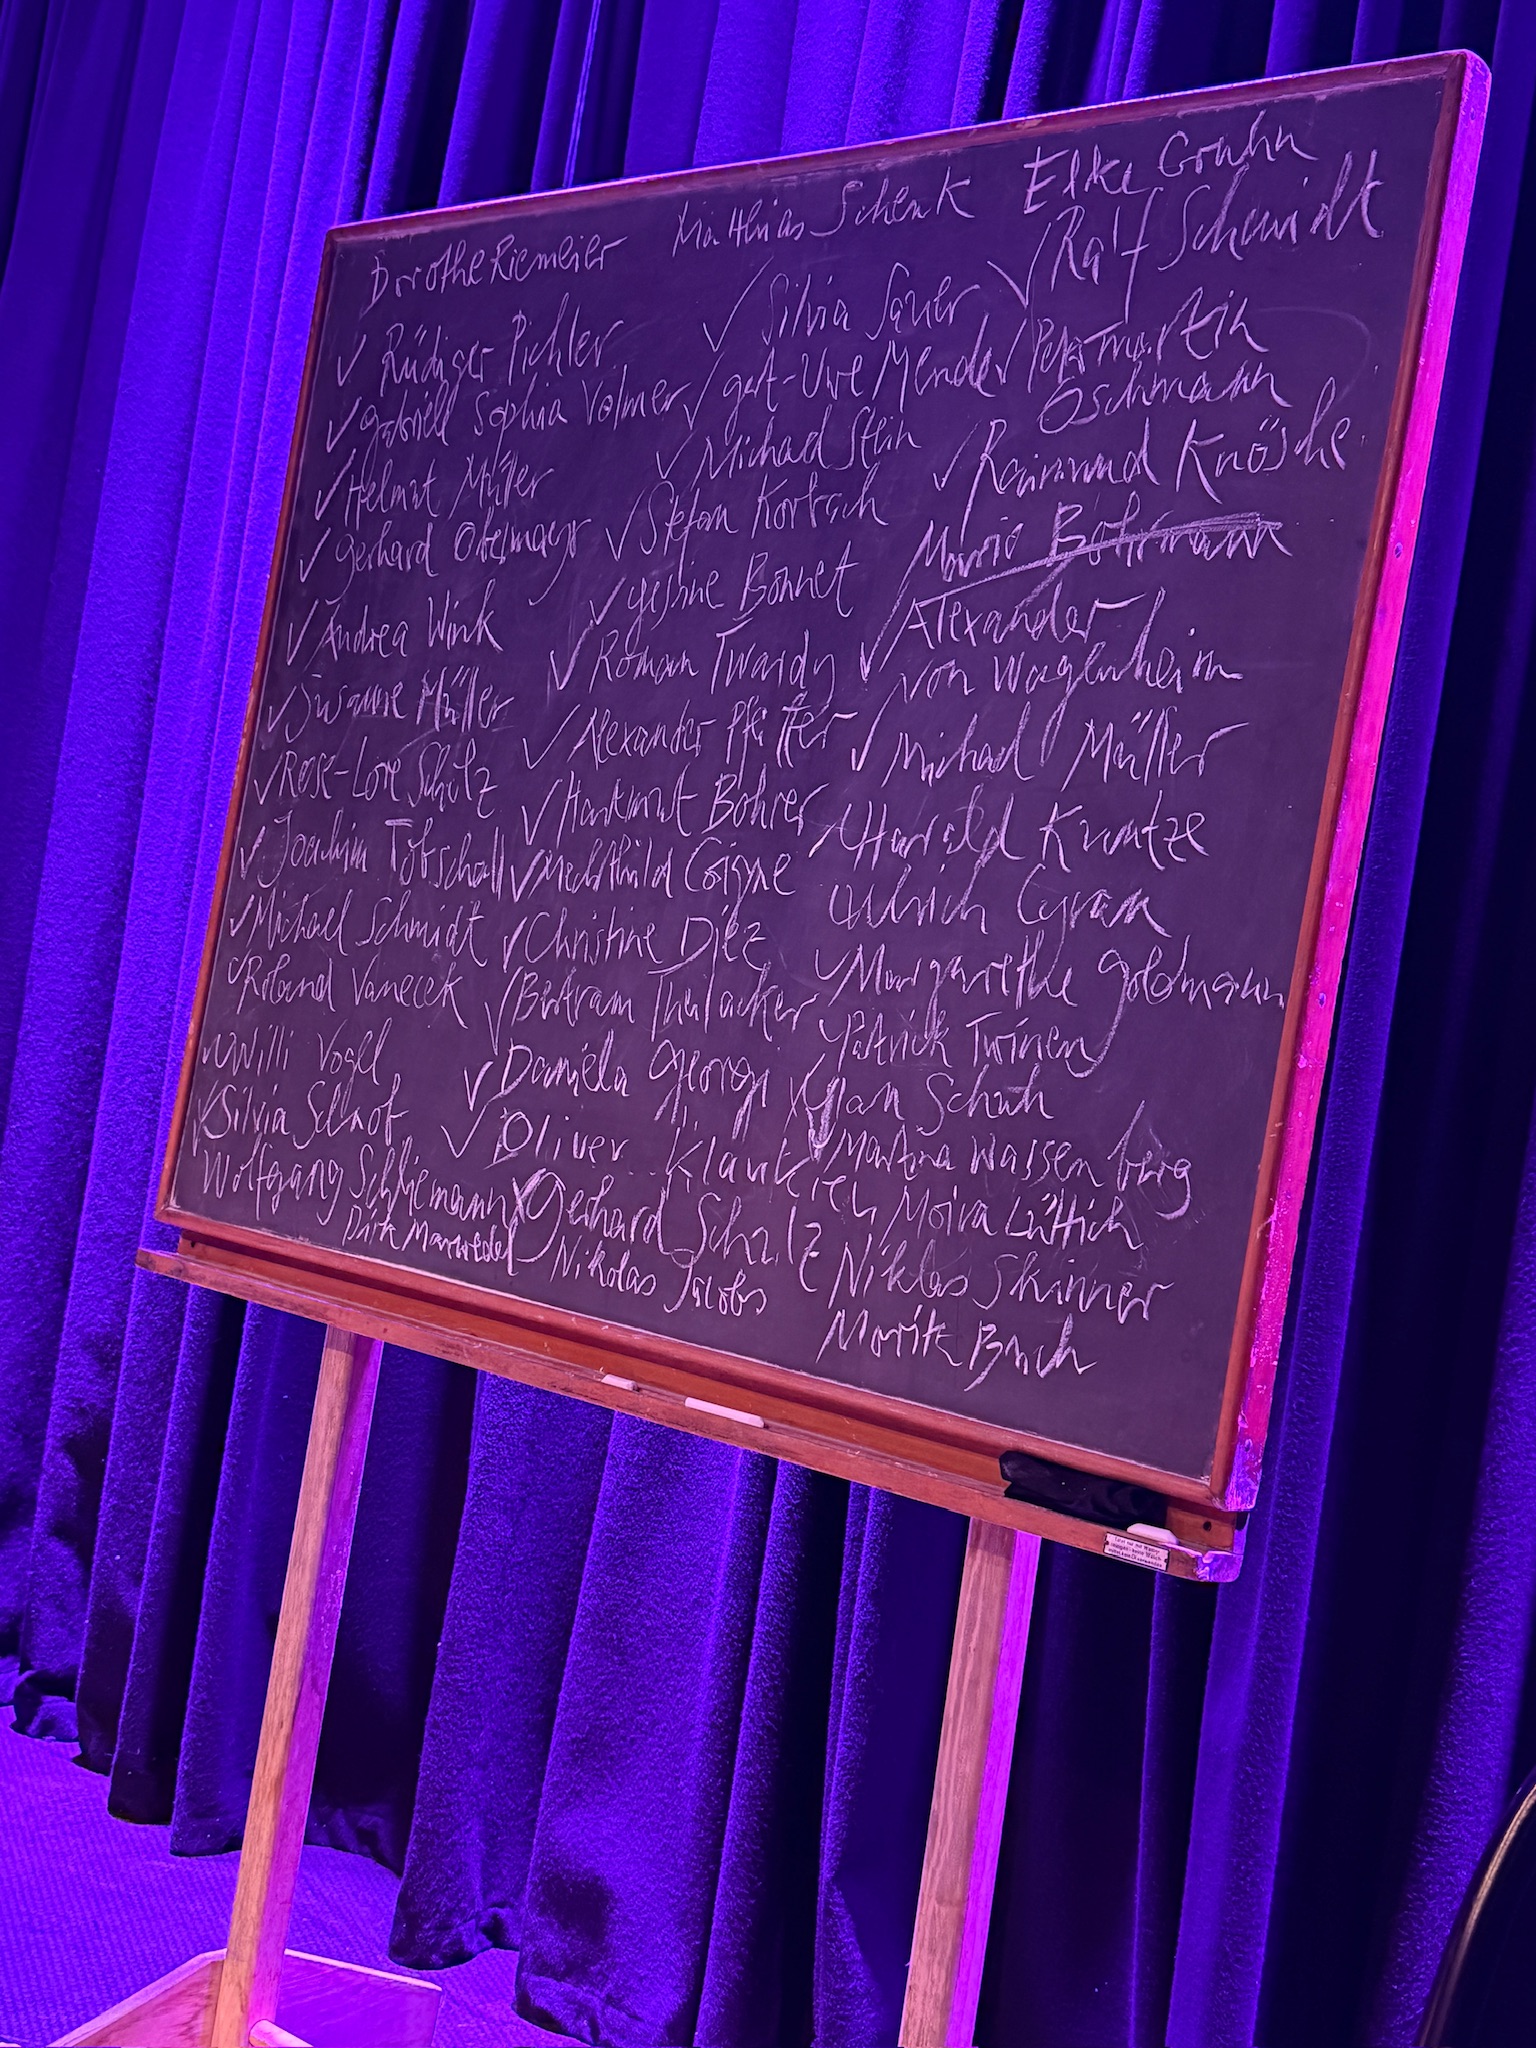 Dorothe Riemeier
✓ Rüdiger Pichler
✓ Gabriell Sophia Volmer
✓ Helmut Müller
✓ Gerhard Obermayr
✓ Andrea Wink
✓ Susanne Müller
✓ Rose-Lore Scholz
✓ Joachim Tobschall
✓ Michael Schmidt
✓ Roland Vanecek
✓ Willi Vogel
✓ Silvia Schnof
Wolfgang Schliemann
Dirk Marwedel
Matthias Schenk
✓ Silvia Sauer
✓ Gert-Uwe Mender
✓ Michael Stein
✓ Stefan Kortsch
✓ Gesine Bonnet
✓ Roman Twardy
✓ Alexander Pfeiffer
✓ Hartmut Bohrer
✓ Mechthild Coigne
✓ Christine Diez
✓ Bertram Theilacker
✓ Daniela Georgi
✓ Oliver Klaukien
Gerhard Schulz
Nikolas Jacobs
Elke Gruhn
✓ Ralf Schmidt
✓ Petermartin
Oschmann
✓ Raimund Knösche
Mario Bohrmann
✓ Alexander
von Wagenheim
✓ Michael Müller
✓ Harald Kuntze
Ulrich Cyran
✓ Margarethe Goldmann
✓ Patrick Twinem
Jan Schuh
✓ Martina Wassenberg
Moira Lüttich
Niklas Skinner
Moritz Buch